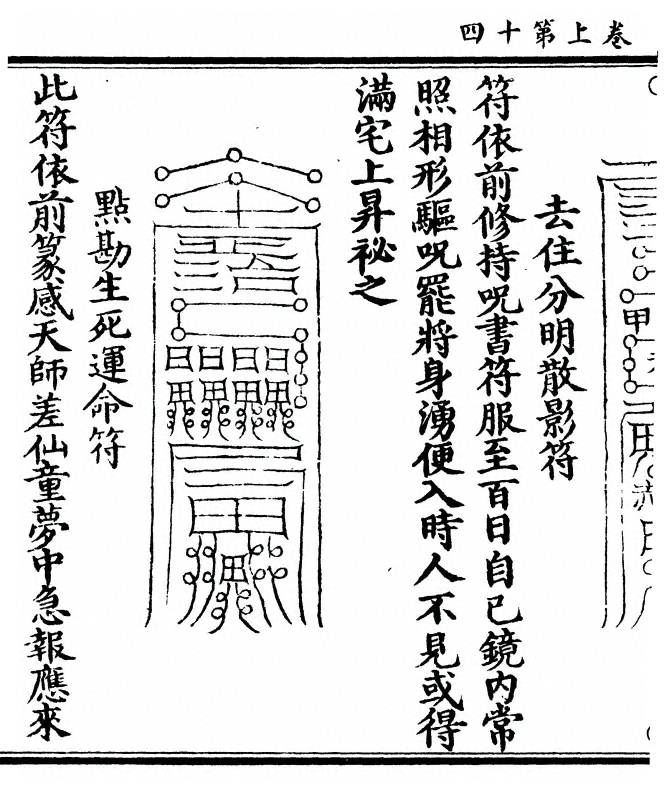 卷上第十四
去住分明散影符
符依前修持呪書符服至百日自己鏡內常
照相形驅呪罷將身湧便入時人不見或得
滿宅上昇祕之
點勘生死運命符
此符依前篆感天師差仙童夢中急報應來